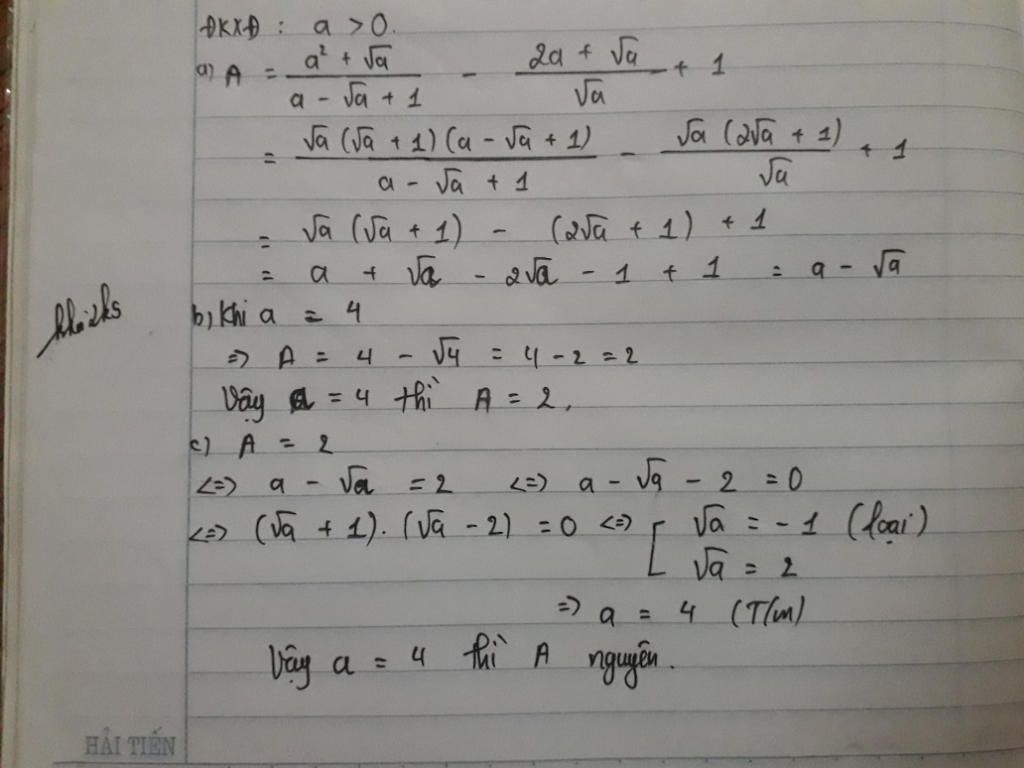 ĐKXĐ : a > 0.
a) A = (a² + √a)/(a - √a + 1) - (2a + √a)/√a + 1
= (√a (√a + 1) (a - √a + 1))/(a - √a + 1) - (√a (2√a + 1))/√a + 1
= √a (√a + 1) - (2√a + 1) + 1
= a + √a - 2√a - 1 + 1 = a - √a
b) Khi a = 4
=> A = 4 - √4 = 4 - 2 = 2
Vậy a = 4 thì A = 2.
c) A = 2
<=> a - √a = 2 <=> a - √a - 2 = 0
<=> (√a + 1). (√a - 2) = 0 <=> [ √a = - 1 (loại)
√a = 2
=> a = 4 (T/m)
Vậy a = 4 thì A nguyên.
HẢI TIẾN